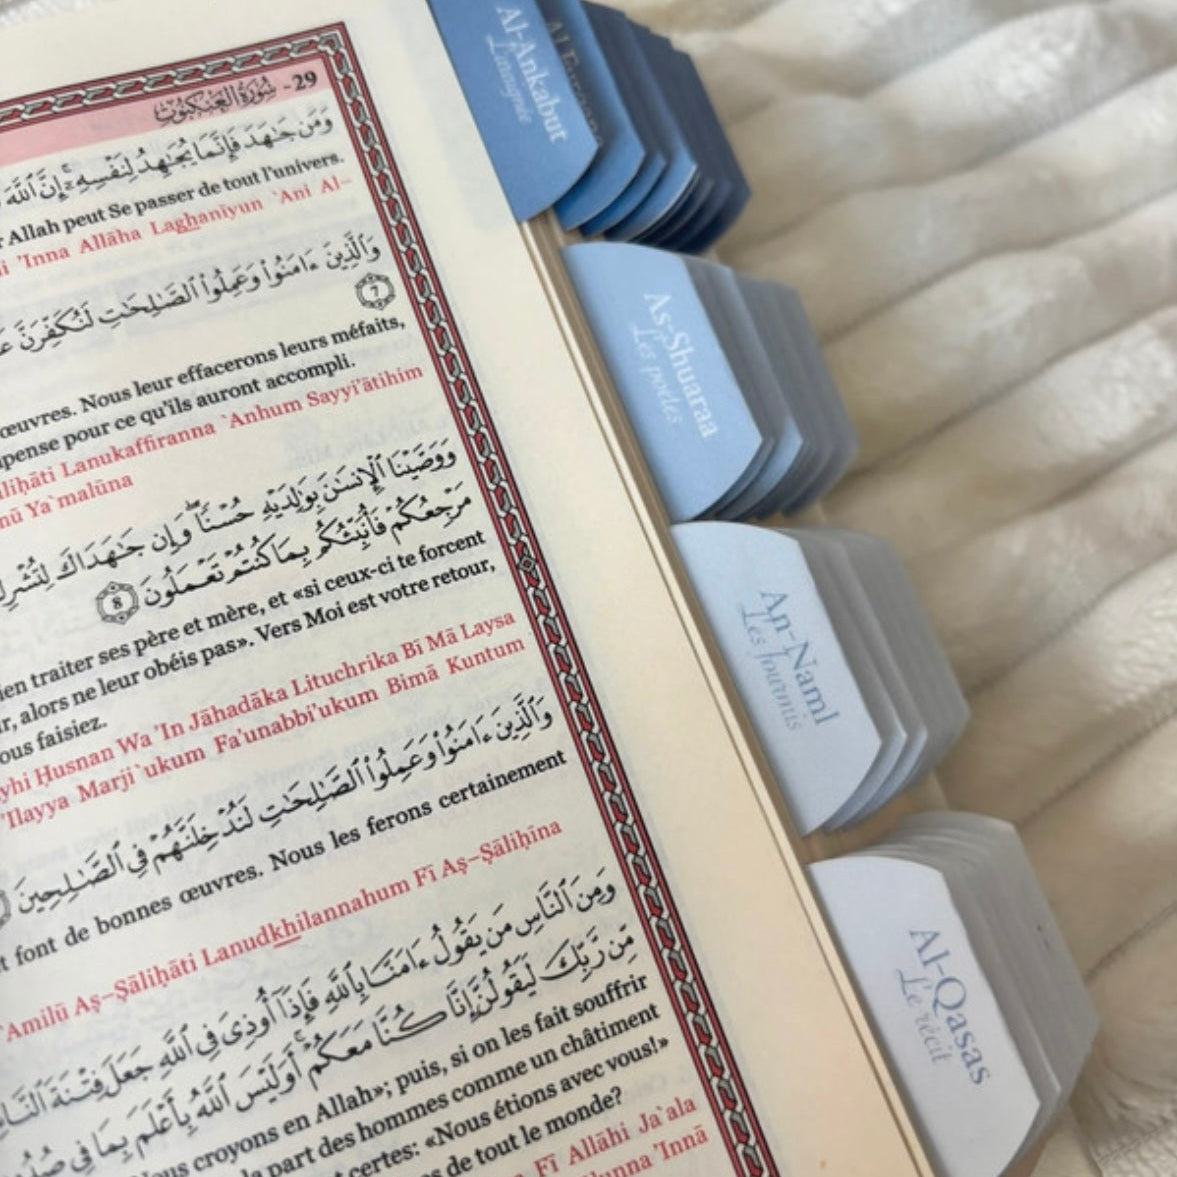 29 - سُورَةُ العَنكبُوتِ
وَمَن جَـٰهَدَ فَإِنَّمَا يُجَـٰهِدُ لِنَفْسِهِۦٓ ۚ إِنَّ ٱللَّهَ
Allah peut Se passer de tout l'univers.
'Inna Allāha Laghanīyun `Ani Al-
وَٱلَّذِينَ ءَامَنُوا۟ وَعَمِلُوا۟ ٱلصَّـٰلِحَـٰتِ لَنُكَفِّرَنَّ
7
œuvres. Nous leur effacerons leurs méfaits,
pense pour ce qu'ils auront accompli.
liḥāti Lanukaffiranna `Anhum Sayyi'ātihim
nū Ya`malūna
وَوَصَّيْنَا ٱلْإِنسَـٰنَ بِوَٰلِدَيْهِ حُسْنًا ۖ وَإِن جَـٰهَدَاكَ لِتُشْرِكَ
مَرْجِعُكُمْ فَأُنَبِّئُكُم بِمَا كُنتُمْ تَعْمَلُونَ 8
ien traiter ses père et mère, et «si ceux-ci te forcent
r, alors ne leur obéis pas». Vers Moi est votre retour,
ous faisiez.
yhi Ḥusnan Wa 'In Jāhadāka Lituchrika Bī Mā Laysa
'Ilayya Marji`ukum Fa'unabbi'ukum Bimā Kuntum
وَٱلَّذِينَ ءَامَنُوا۟ وَعَمِلُوا۟ ٱلصَّـٰلِحَـٰتِ لَنُدْخِلَنَّهُمْ فِى ٱلصَّـٰلِحِينَ
t font de bonnes œuvres. Nous les ferons certainement
`Amilū Aṣ-Ṣāliḥāti Lanudkhilannahum Fī Aṣ-Ṣāliḥīna
وَمِنَ ٱلنَّاسِ مَن يَقُولُ ءَامَنَّا بِٱللَّهِ فَإِذَآ أُوذِىَ فِى ٱللَّهِ جَعَلَ فِتْنَةَ ٱلنَّاسِ
مِّن رَّبِّكَ لَيَقُولُنَّ إِنَّا كُنَّا مَعَكُمْ ۚ أَوَلَيْسَ ٱللَّهُ بِأَعْلَمَ بِمَا فِى صُدُورِ
ous croyons en Allah»; puis, si on les fait souffrir
la part des hommes comme un châtiment
certes: «Nous étions avec vous!»
s de tout le monde?
Fī Allāhi Ja`ala
lunna 'Innā
Al-Ankabut
L'araignée
As-Shuaraa
Les poètes
An-Naml
Les fourmis
Al-Qasas
Le récit